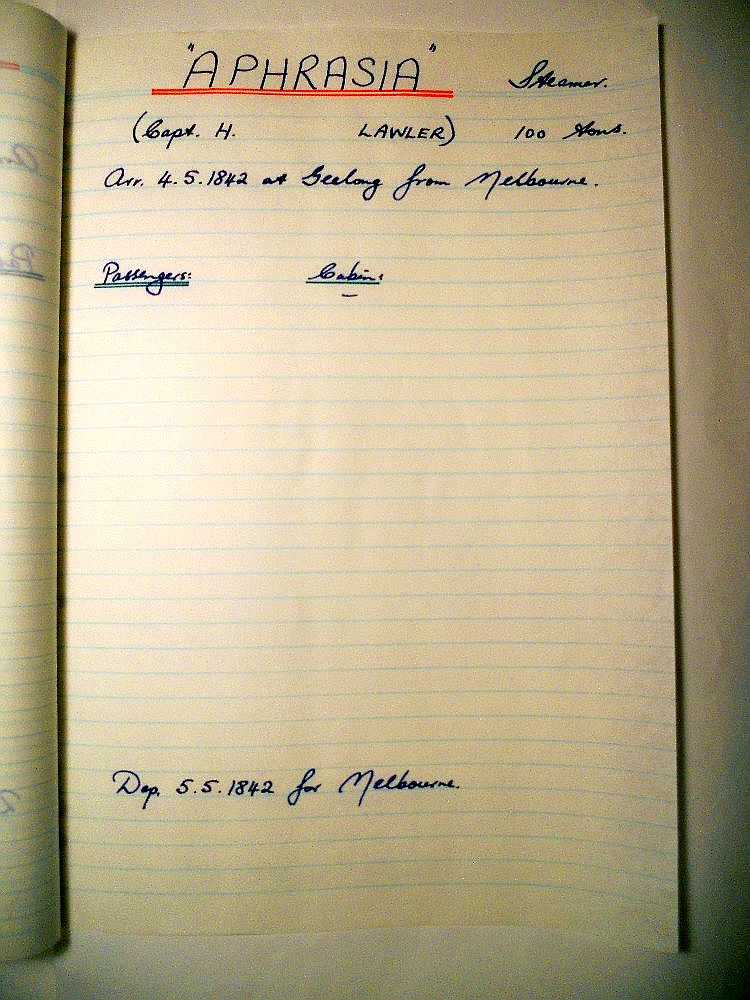 "APHRASIA" Steamer.
(Capt. H. LAWLER) 100 tons.
Arr. 4.5.1842 at Geelong from Melbourne.
Passengers: Cabin:
–
Dep. 5.5.1842 for Melbourne.